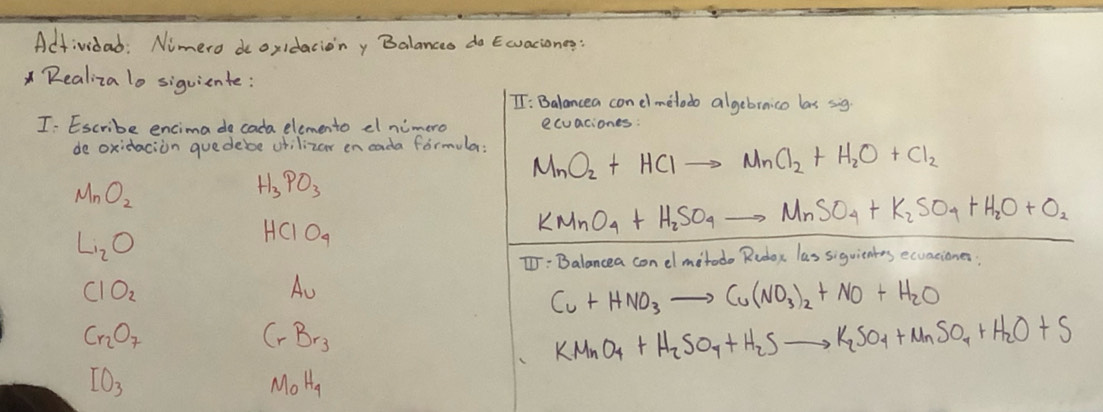 Actividad: Número de oxidación y Balanceo de Ecuaciones:
* Realiza lo siguiente:
I: Escribe encima de cada elemento el número
de oxidación que debe utilizar en cada fórmula:
MnO₂
Li₂O
ClO₂
Cr₂O₇
IO₃
H₃PO₃
HClO₄
Au
CrBr₃
MoH₄
II: Balancea con el método algebraico las sig.
ecuaciones:
MnO₂ + HCl → MnCl₂ + H₂O + Cl₂
KMnO₄ + H₂SO₄ → MnSO₄ + K₂SO₄ + H₂O + O₂
III: Balancea con el método Redox las siguientes ecuaciones:
Cu + HNO₃ → Cu(NO₃)₂ + NO + H₂O
KMnO₄ + H₂SO₄ + H₂S → K₂SO₄ + MnSO₄ + H₂O + S